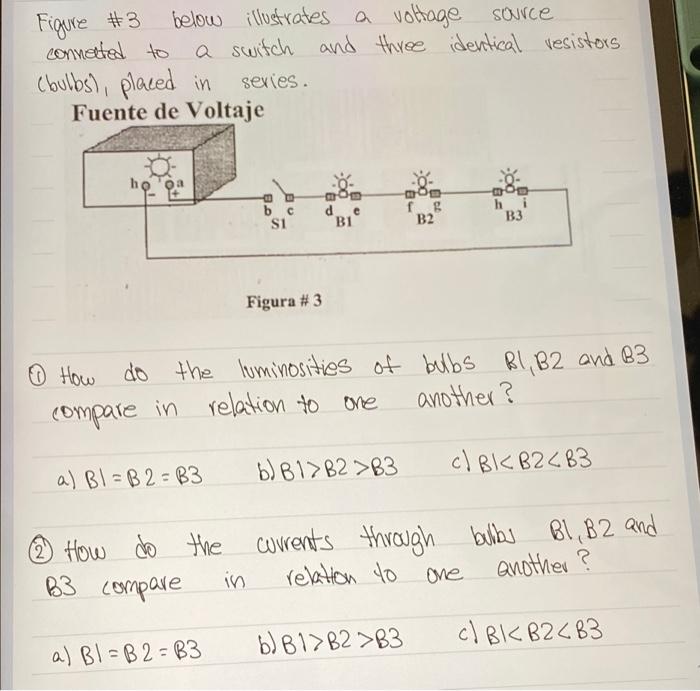 Figure #3 below illustrates a voltage source
connected to a switch and three identical resistors
(bulbs), placed in series.
Fuente de Voltaje
h a
- +
b c d e f g h i
S1 B1 B2 B3
Figura # 3
① How do the luminosities of bulbs B1, B2 and B3
compare in relation to one another?
a) B1 = B2 = B3 b) B1 > B2 > B3 c) B1 < B2 < B3
② How do the currents through bulbs B1, B2 and
B3 compare in relation to one another?
a) B1 = B2 = B3 b) B1 > B2 > B3 c) B1 < B2 < B3